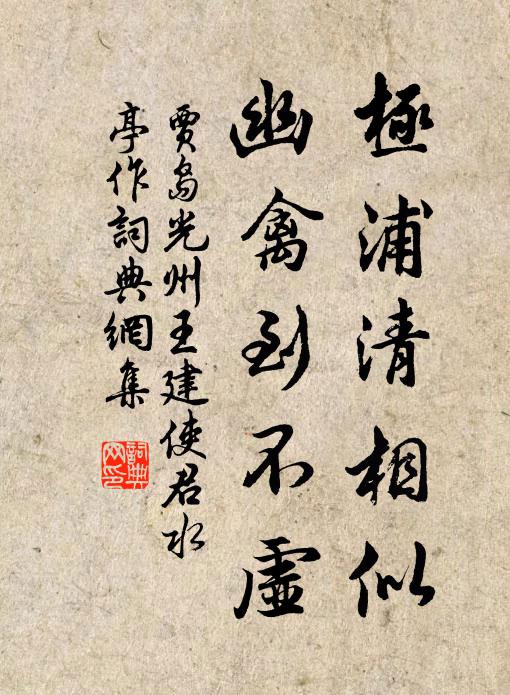 極浦清相似
幽禽到不虛
賈島光州王建使君水
亭作詞典網集
詞典
网印